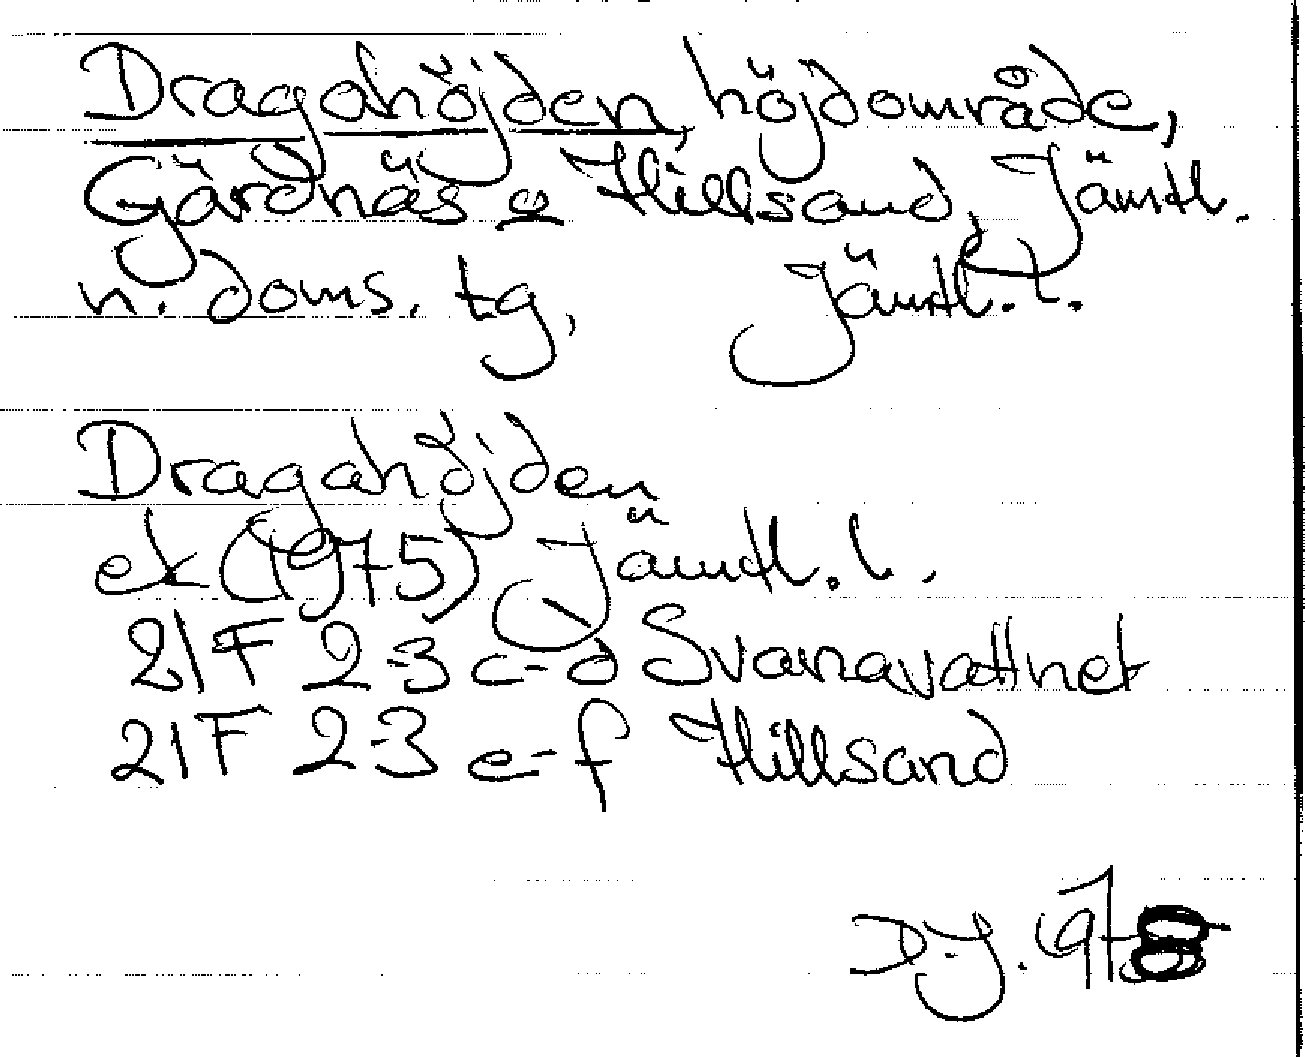 Dragahöjden, höjdområde,
Gärdnäs o Hillsand, Jämtl.
n. doms. tg, Jämtl. l.
Dragahöjden
ek (1975) Jämtl. l.
21F 2-3 c-d Svanavattnet
21F 2-3 e-f Hillsand
D.J. 1978